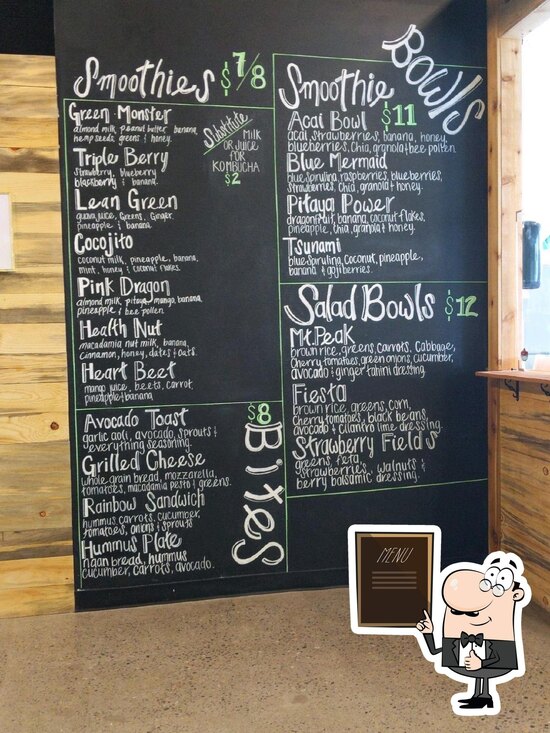 Smoothies $7/8
Green Monster
almond milk, peanut butter banana,
hemp seeds, greens & honey.
Triple Berry
Strawberry, blueberry
blackberry & banana.
Lean Green
guava juice, Greens, Ginger,
pineapple & banana
Cocojito
coconut milk, pineapple, banana,
mint, honey & coconut flakes.
Pink Dragon
almond milk, pitaya, mango, banana,
pineapple & bee pollen.
Health Nut
macadamia nut milk, banana,
cinnamon, honey, dates & oats.
Heart Beet
mango juice, beets, carrot,
pineapple & banana
Substitute
MILK
OR JUICE
FOR
KOMBUCHA
$2
$8
Bites
Avocado Toast
garlic aoli, avocado, sprouts &
everything seasoning.
Grilled Cheese
whole grain bread, mozzarella,
tomatoes, macadamia pesto & greens.
Rainbow Sandwich
hummus, carrots, cucumber,
tomatoes, onions & sprouts
Hummus Plate
naan bread, hummus
cucumber, carrots, avocado.
Smoothie Bowls
$11
Acai Bowl
acai, strawberries, banana, honey,
blueberries, Chia, granola & bee pollen.
Blue Mermaid
blue spiruling, raspberries, blueberries,
strawberries, Chia, granola & honey.
Pitaya Power
dragonfruit, banana, coconut flakes,
pineapple, chia, granola & honey.
Tsunami
blue spiruling, coconut, pineapple,
banana & goji berries.
Salad Bowls $12
Mt. Peak
brown rice, greens, carrots, Cabbage,
Cherry tomatoes, green onions, cucumber,
avocado & ginger tahini dressing.
Fiesta
brown rice, greens, corn,
Cherry tomatoes, black beans,
avocado & cilantro lime dressing.
Strawberry Fields
greens, feta,
strawberries, walnuts &
berry balsamic dressing.
MENU